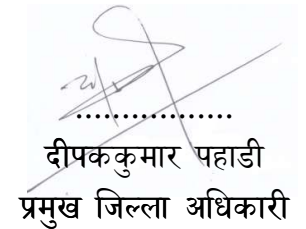 .................
दीपककुमार पहाडी
प्रमुख जिल्ला अधिकारी